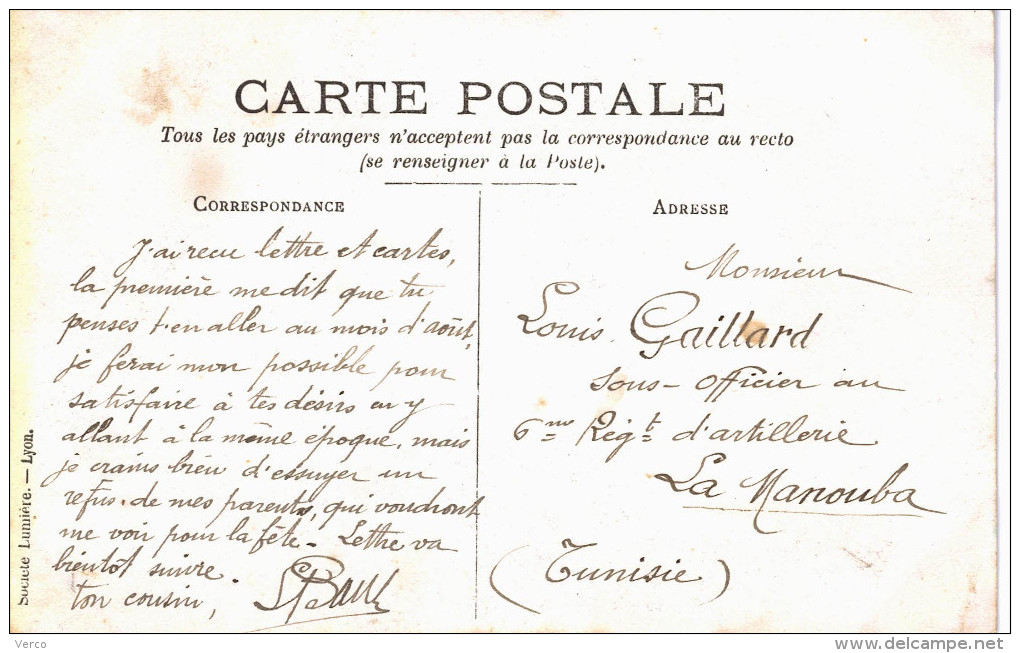 CARTE POSTALE
Tous les pays étrangers n'acceptent pas la correspondance au recto
(se renseigner à la Poste).
CORRESPONDANCE
J'ai recu lettre et cartes,
la première me dit que tu
penses t'en aller au mois d'août,
je ferai mon possible pour
satisfaire à tes désirs en y
allant à la même époque, mais
je crains bien d'essuyer un
refus de mes parents, qui voudront
me voir pour la fête - Lettre va
bientôt suivre.
ton cousin,
ADRESSE
Monsieur
Louis Gaillard
sous-officier au
6me Régt d'artillerie
La Manouba
(Tunisie)
Société Lumière. — Lyon.
Verco
delcampe.net